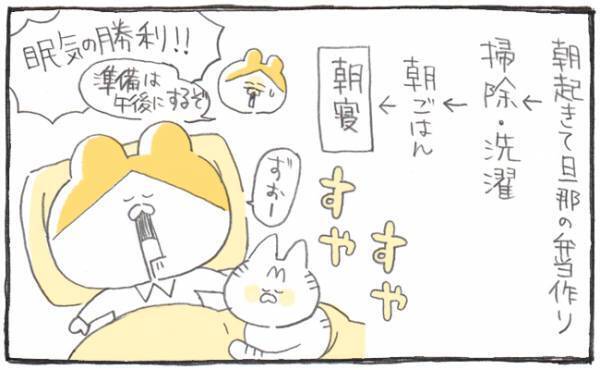 朝起きて旦那の弁当作り
↓
掃除・洗濯
↓
朝ごはん
↓
朝寝
眠気の勝利!!
準備は
午後にするぞ
ずおー
すや
すや